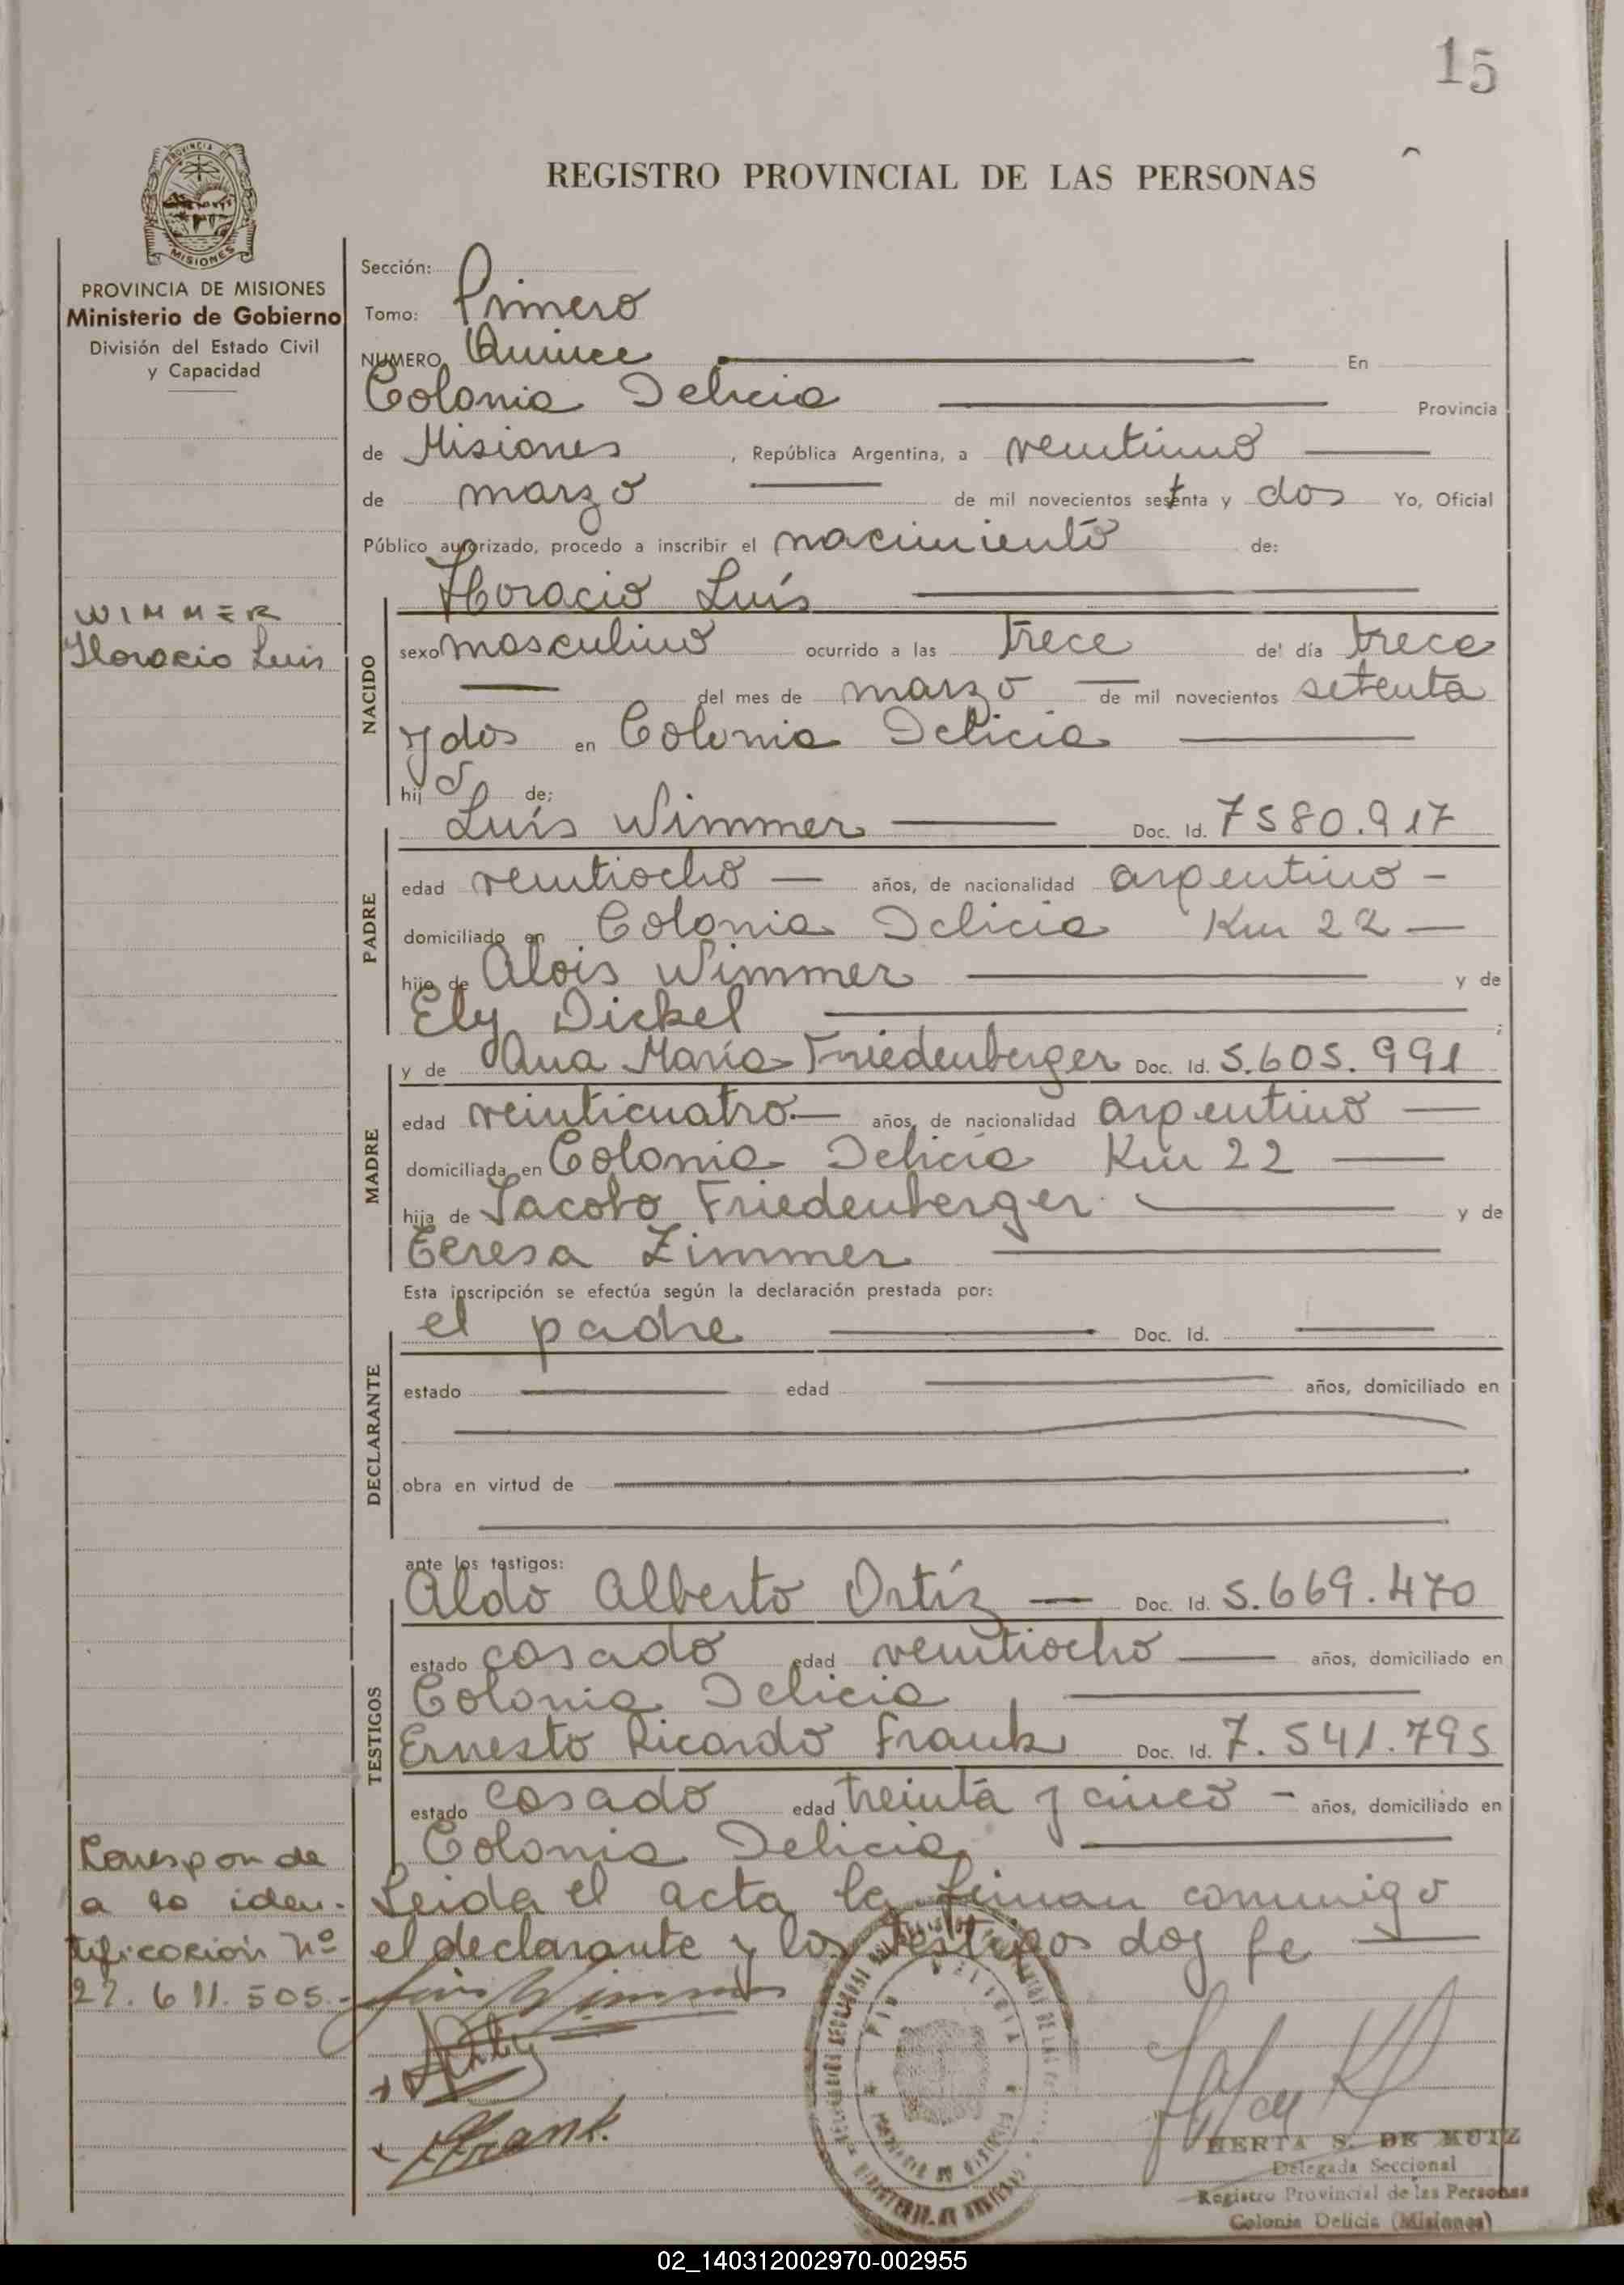 15
REGISTRO PROVINCIAL DE LAS PERSONAS
PROVINCIA DE
MISIONES
PROVINCIA DE MISIONES
Ministerio de Gobierno
División del Estado Civil
y Capacidad
WIMMER
Horacio Luis
Corresponde
a la iden-
tificación nº
22.611.505.-
Sección:
Tomo: Primero
NUMERO Quince En
Colonia Delicia Provincia
de Misiones, República Argentina, a veintiuno
de marzo de mil novecientos setenta y dos Yo, Oficial
Público autorizado, procedo a inscribir el nacimiento de:
Horacio Luís
NACIDO
sexo masculino ocurrido a las trece del día trece
del mes de marzo de mil novecientos setenta
y dos en Colonia Delicia
hijo de;
Luís Wimmer Doc. Id. 7580.917
PADRE
edad veintiocho años, de nacionalidad argentino
domiciliado en Colonia Delicia Km 22
hijo de Alois Wimmer y de
Ely Dickel ;
y de Ana María Friedenberger Doc. Id. 5.605.991
MADRE
edad veinticuatro años, de nacionalidad argentino
domiciliada en Colonia Delicia Km 22
hija de Jacobo Friedenberger y de
Teresa Zimmer
Esta inscripción se efectúa según la declaración prestada por:
el padre Doc. Id.
DECLARANTE
estado edad años, domiciliado en
obra en virtud de
ante los testigos:
Aldo Alberto Ortíz Doc. Id. 5.669.470
TESTIGOS
estado casado edad veintiocho años, domiciliado en
Colonia Delicia
Ernesto Ricardo Frank Doc. Id. 7.541.795
estado casado edad treinta y cinco años, domiciliado en
Colonia Delicia
Leida el acta la firman conmigo
el declarante y los testigos doy fe
Luis Wimmer
Frank.
HERTA S. DE KUTZ
Delegada Seccional
Registro Provincial de las Personas
Colonia Delicia (Misiones)
02_140312002970-002955